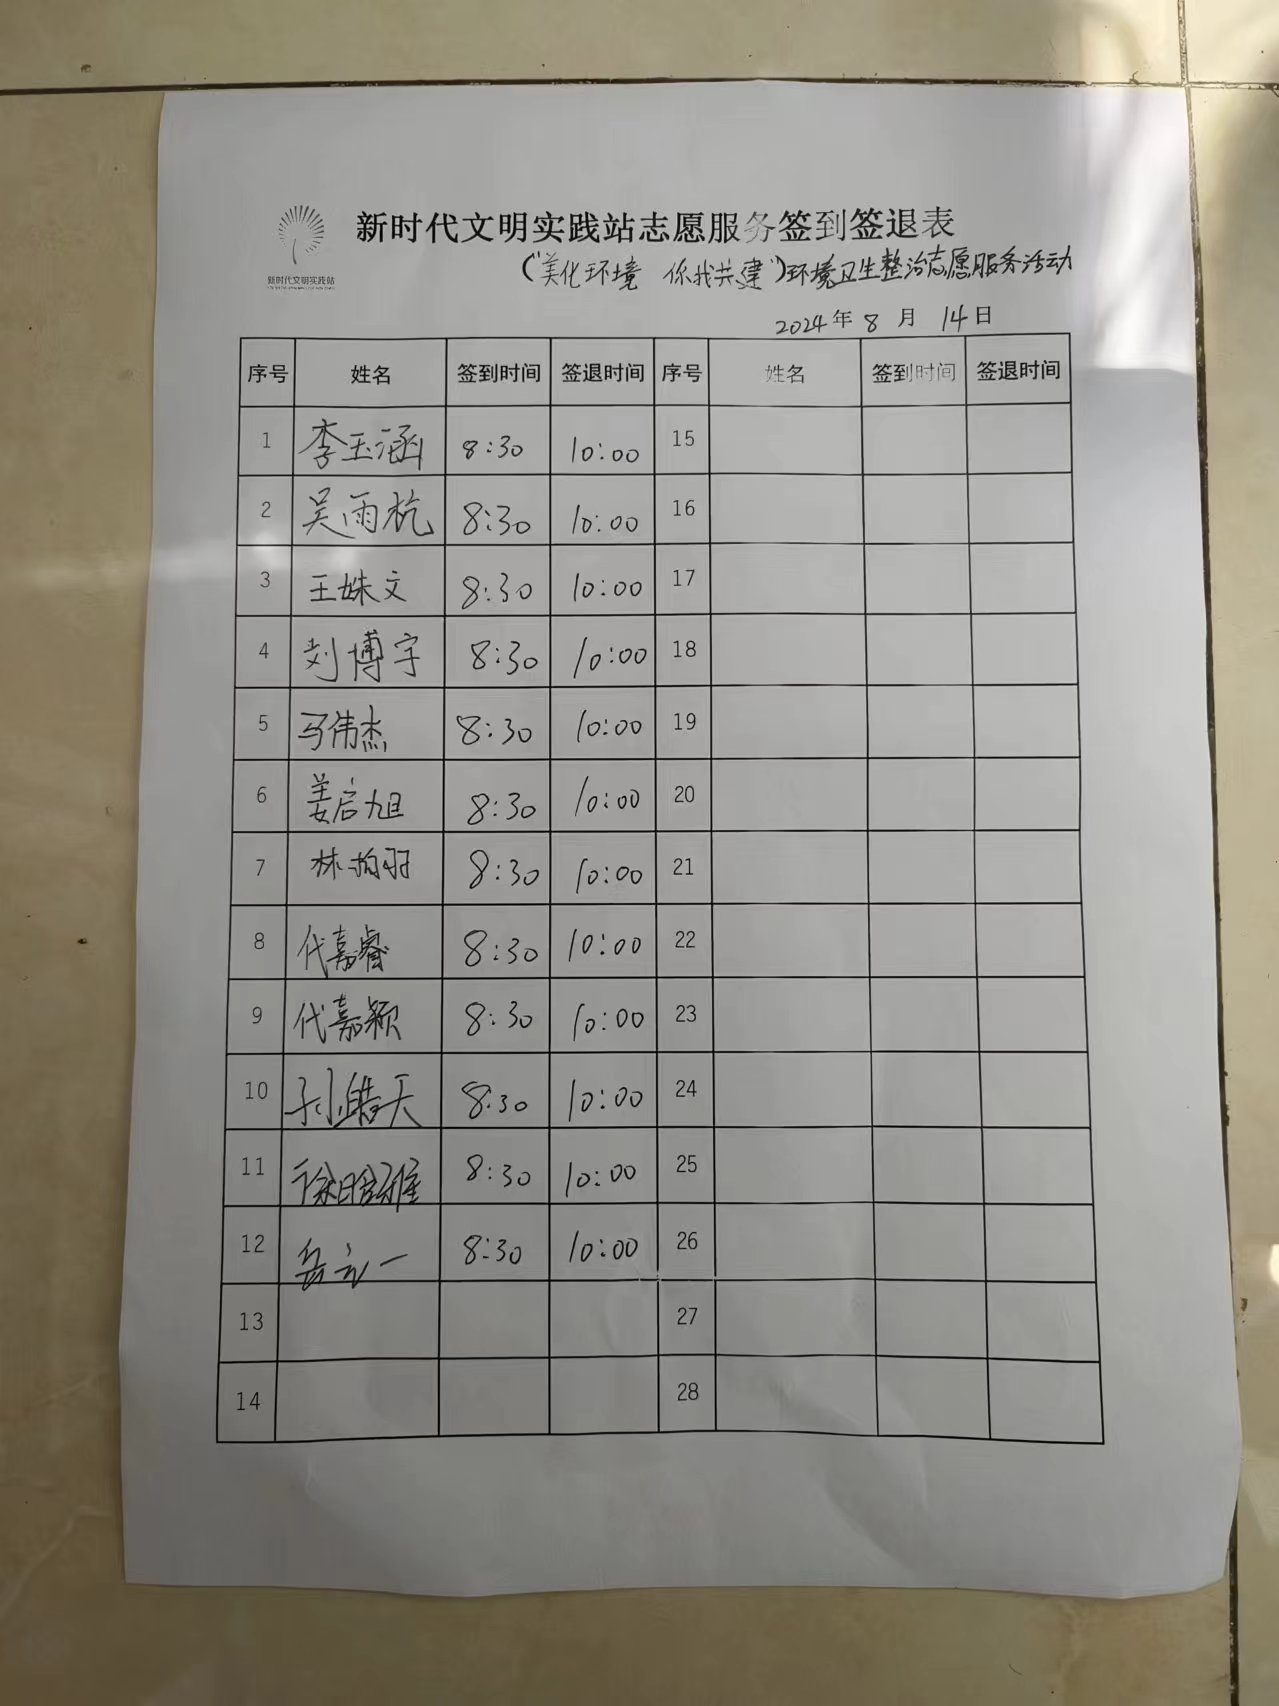 新时代文明实践站志愿服务签到签退表
新时代文明实践站
（"美化环境 你我共建"）环境卫生整治志愿服务活动
2024年 8 月 14日
序号 姓名 签到时间 签退时间 序号 姓名 签到时间 签退时间
1 李玉涵 8:30 10:00 15
2 吴雨杭 8:30 10:00 16
3 王姝文 8:30 10:00 17
4 刘博宇 8:30 10:00 18
5 马伟杰 8:30 10:00 19
6 姜启旭 8:30 10:00 20
7 林 羽 8:30 10:00 21
8 代嘉睿 8:30 10:00 22
9 代嘉颖 8:30 10:00 23
10 孙皓天 8:30 10:00 24
11 徐 8:30 10:00 25
12 岳立一 8:30 10:00 26
13 27
14 28